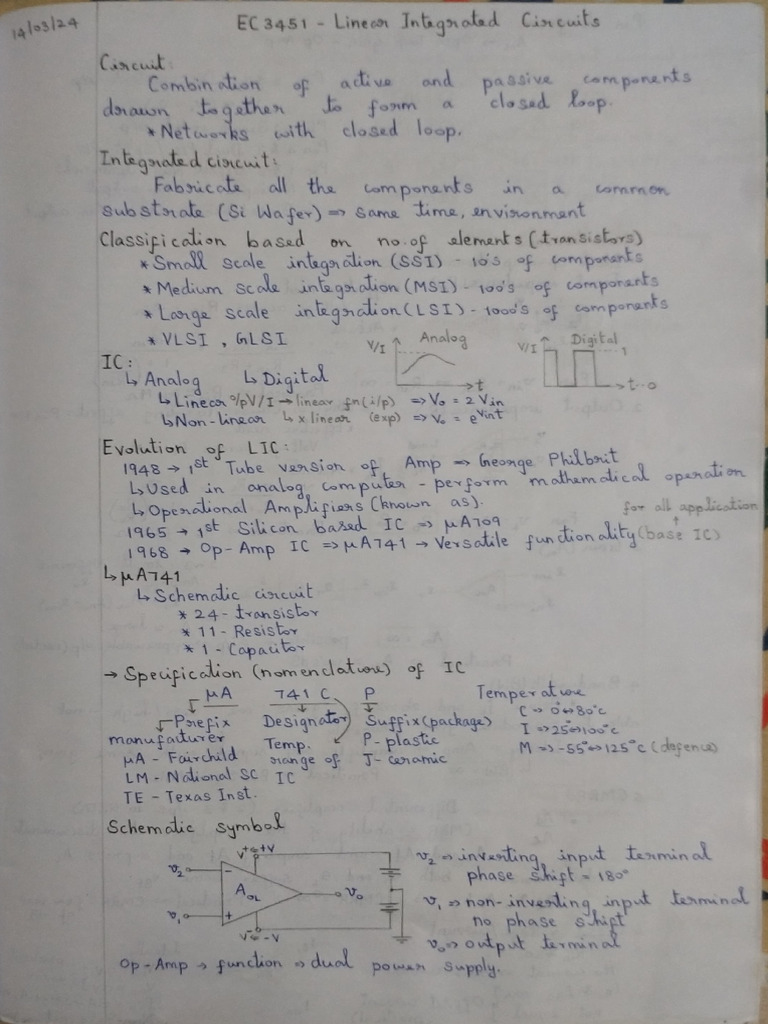 14/03/24
EC3451 - Linear Integrated Circuits
Circuit:
Combination of active and passive components
drawn together to form a closed loop.
* Networks with closed loop.
Integrated circuit:
Fabricate all the components in a common
substrate (Si Wafer) ⇒ same time, environment
Classification based on no.of elements (transistors)
* Small scale integration (SSI) - 10's of components
* Medium scale integration (MSI) - 100's of components
* Large scale integration (LSI) - 1000's of components
* VLSI , GLSI
V/I Analog t
V/I Digital 1 t 0
IC:
↳ Analog ↳ Digital
↳ Linear o/p V/I → linear fn(i/p) ⇒ Vo = 2 Vin
↳ Non-linear ↳ x linear (exp) ⇒ Vo = e^Vint
Evolution of LIC:
1948 → 1st Tube version of Amp ⇒ George Philbrit
↳ Used in analog computer - perform mathematical operation
↳ Operational Amplifiers (known as).
for all application
1965 → 1st Silicon based IC ⇒ μA709
1968 → Op-Amp IC ⇒ μA741 → Versatile functionality (base IC)
↳ μA741
↳ Schematic circuit
* 24 - transistor
* 11 - Resistor
* 1 - Capacitor
→ Specification (nomenclature) of IC
μA 741 C P Temperature
Prefix Designator Suffix (package) C ⇒ 0°↔80°c
manufaiturer Temp. P - plastic I ⇒ 25°↔100°c
μA - Fairchild range of J - ceramic M ⇒ -55°↔125°c (defence)
LM - National SC IC
TE - Texas Inst.
Schematic symbol
V+ +V
v2 - AOL v0
v1 +
V- -V
v2 ⇒ inverting input terminal
phase shift = 180°
v1 ⇒ non-inverting input terminal
no phase shift
v0 ⇒ output terminal
Op-Amp → function ⇒ dual power supply.